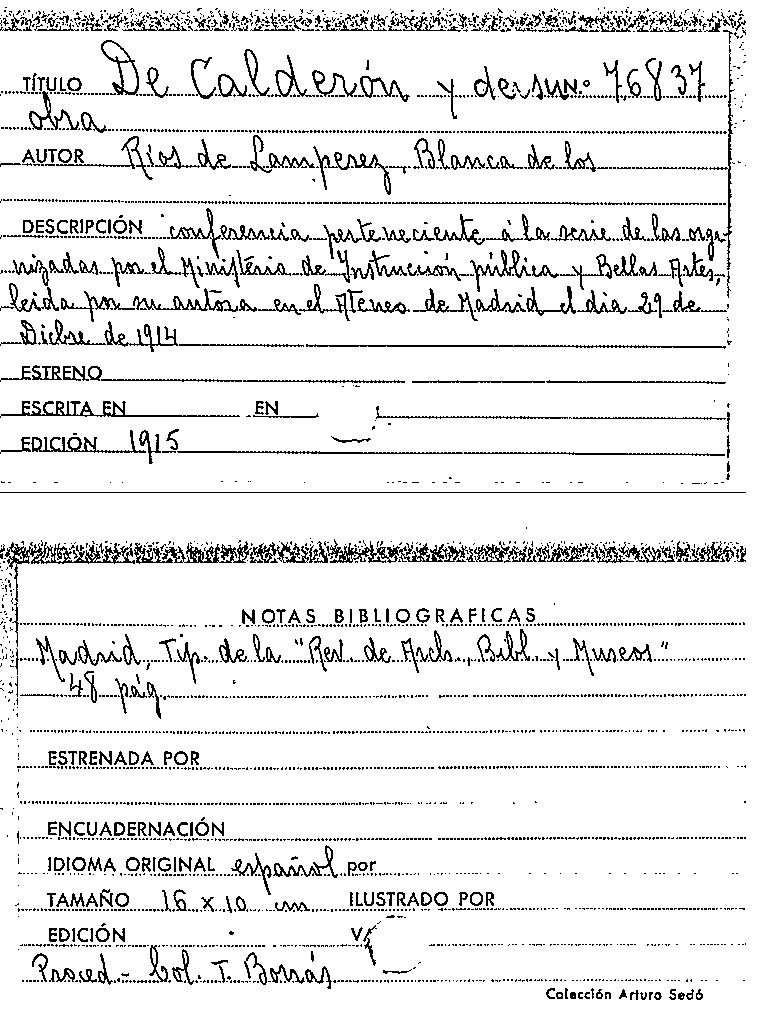 TÍTULO De Calderón y de su N.º 76837
obra
AUTOR Ríos de Lamperez, Blanca de los
DESCRIPCIÓN conferencia perteneciente á la serie de las orga-
nizadas por el Ministerio de Instrucción pública y Bellas Artes,
leida por su autora en el Ateneo de Madrid el dia 29 de
Dicbre de 1914
ESTRENO
ESCRITA EN EN
EDICIÓN 1915
NOTAS BIBLIOGRAFICAS
Madrid, Tip. de la "Rev. de Archs., Bibl. y Museos"
48 pág.
ESTRENADA POR
ENCUADERNACIÓN
IDIOMA ORIGINAL español por
TAMAÑO 16 x 10 cm ILUSTRADO POR
EDICIÓN
Proced.- Col. T. Borrás
Colección Arturo Sedó